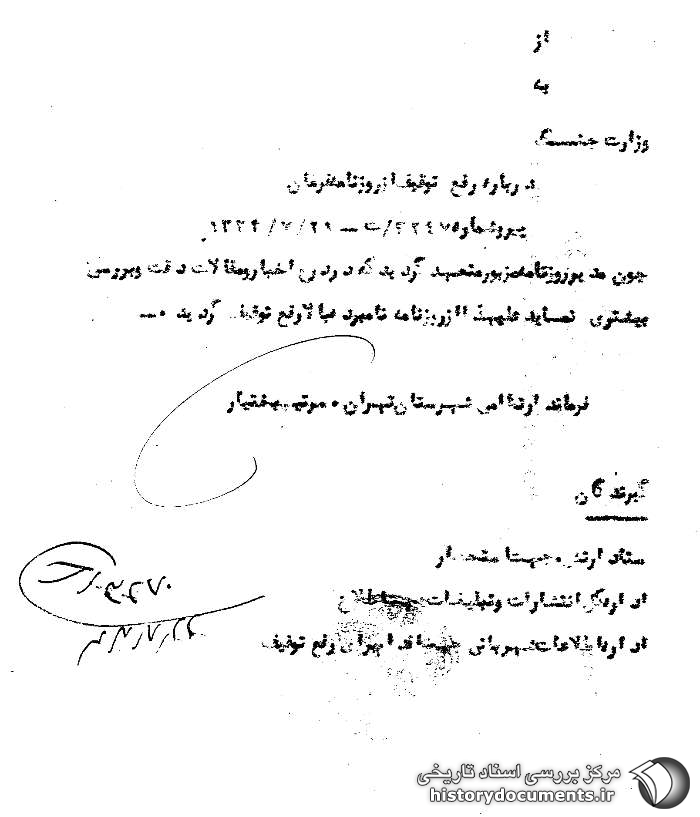 از
به
وزارت جنگ
درباره رفع توقیف از روزنامه فرمان
پیرو شماره ۲۲۴۷۵/ت – ۲۱/۷/۱۳۳۴
چون مدیر روزنامه مزبور متعهد گردید که در درج اخبار و مقالات دقت و بررسی
بیشتری نماید علیهذا از روزنامه نامبرده بالا رفع توقیف گردید ۰–
فرماندار نظامی شهرستان تهران ۰ سرتیپ بختیار
گیرندگان
ستاد ارتش ۰ جهت استحضار
اداره کل انتشارات و تبلیغات جهت اطلاع
اداره اطلاعات شهربانی رفع توقیف
مرکز بررسی اسناد تاریخی
historydocuments.ir